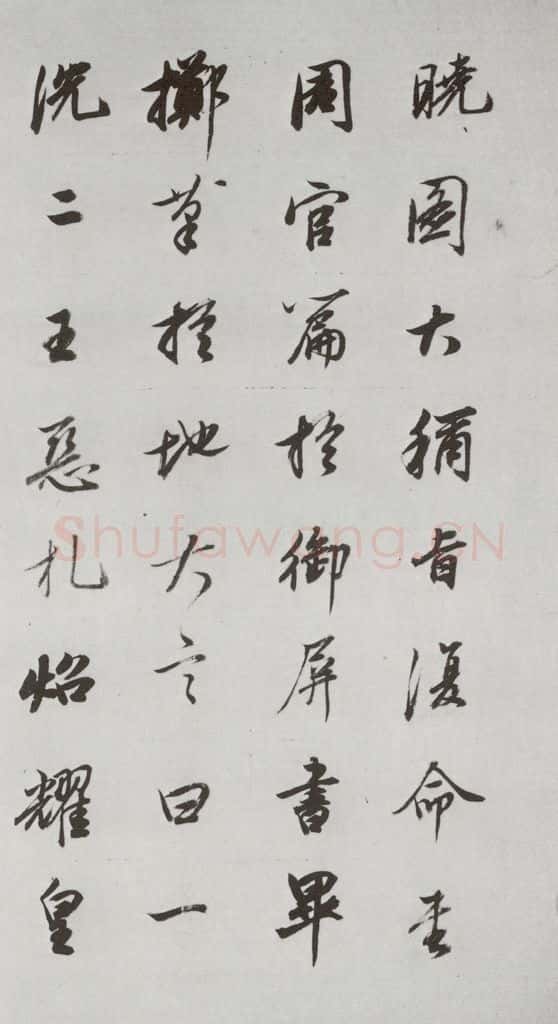 曉圖大稱旨復命書
周官篇於御屏書畢
擲筆於地大言曰一
洗二王惡札炤耀皇
Shufawang.CN